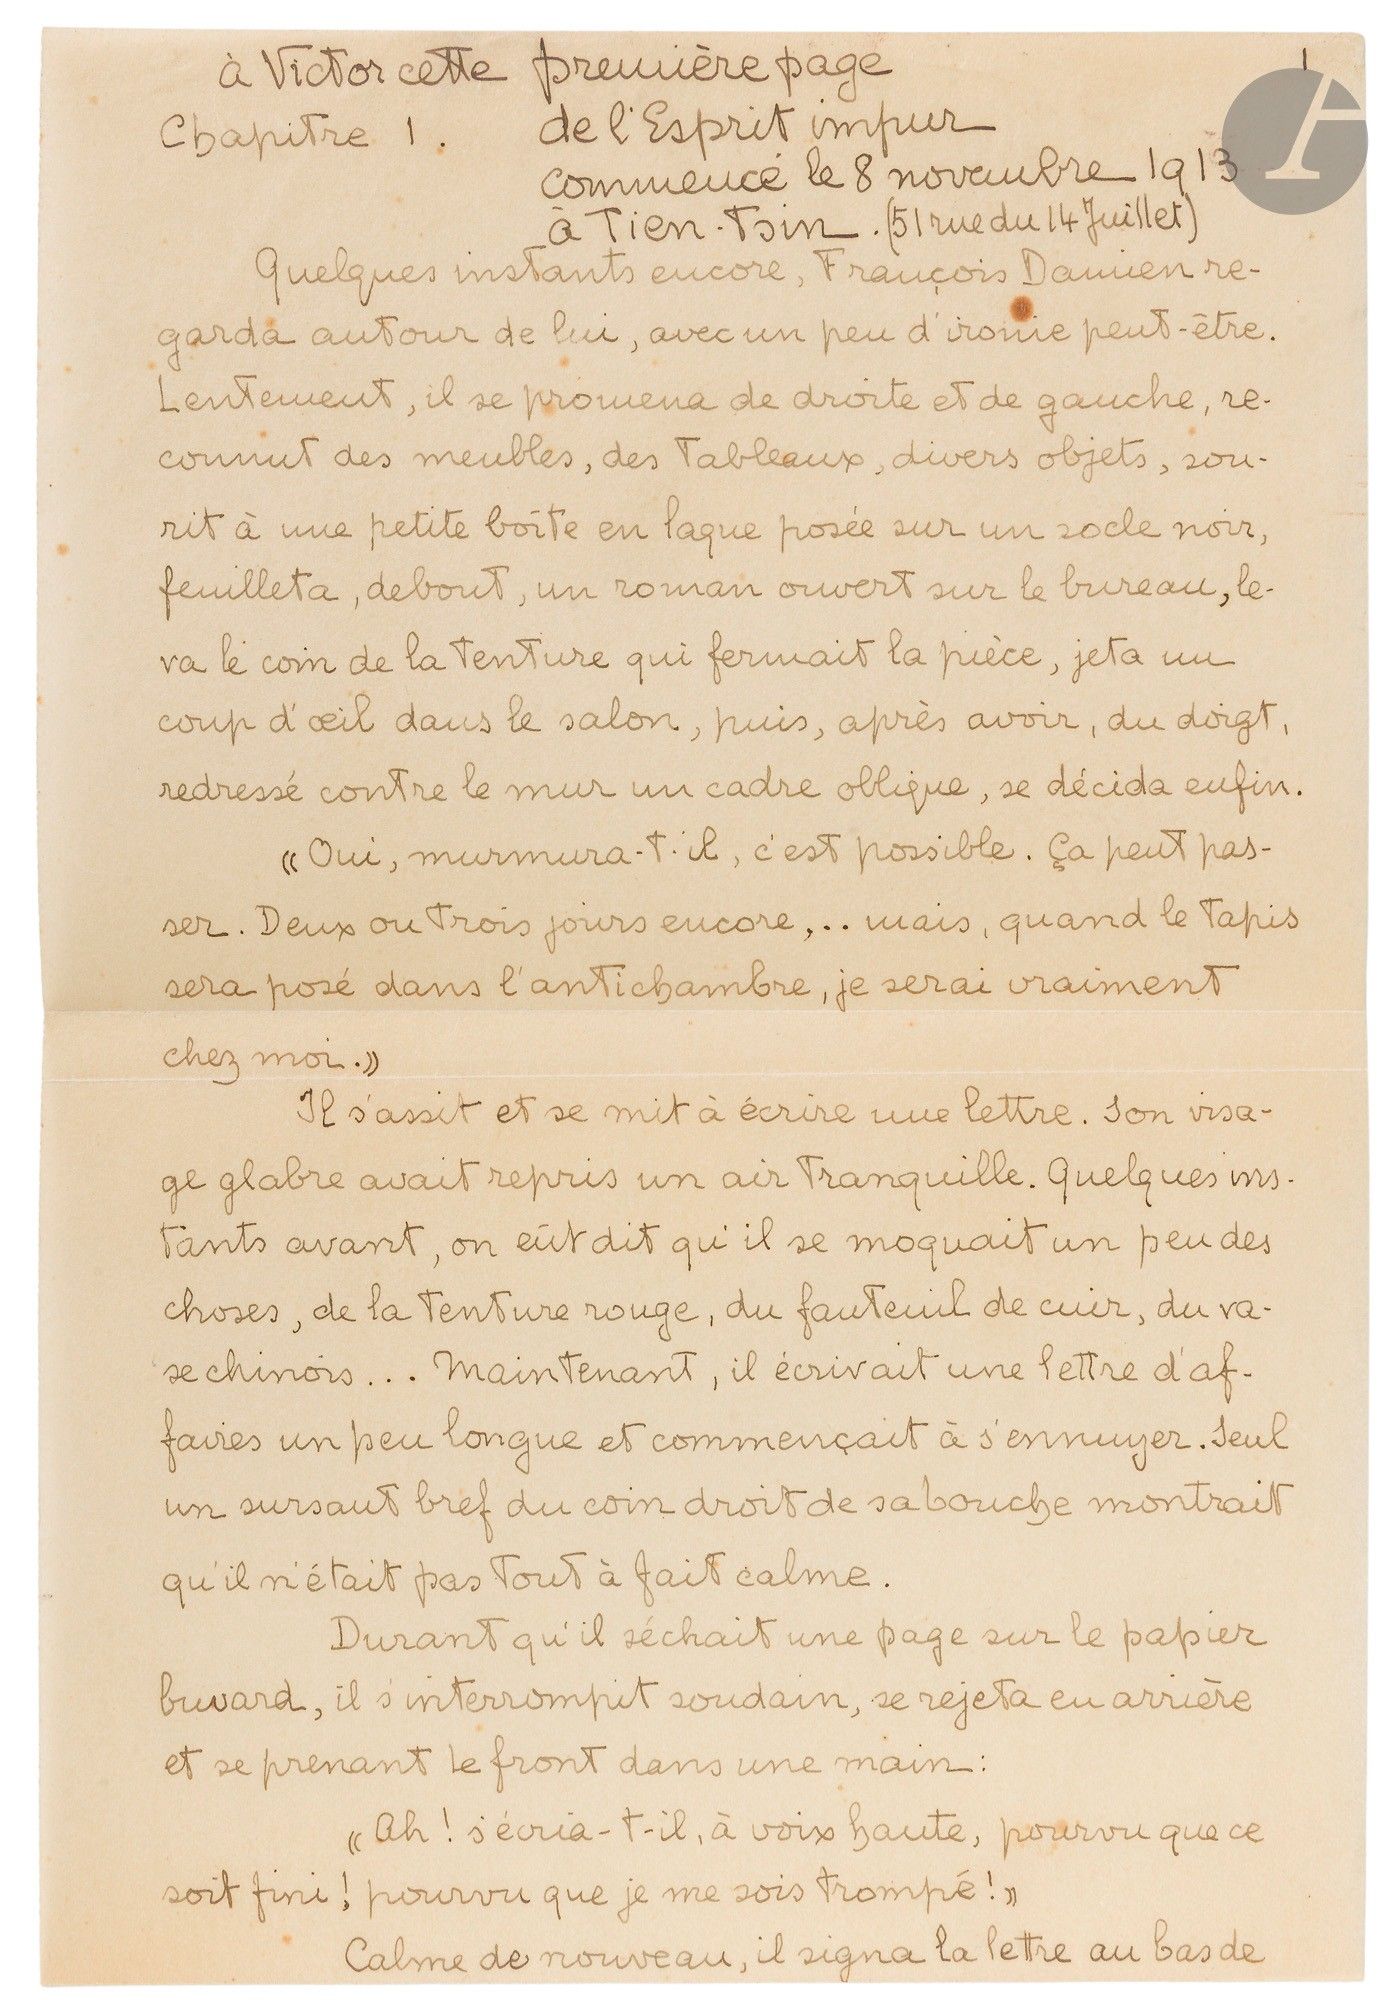 à Victor cette première page
1
Chapitre 1. de l'Esprit impur
commencé le 8 novembre 1913
à Tien-Tsin. (51 rue du 14 Juillet)
Quelques instants encore, François Damien re-
garda autour de lui, avec un peu d'ironie peut-être.
Lentement, il se promena de droite et de gauche, re-
connut des meubles, des tableaux, divers objets, sou-
rit à une petite boîte en laque posée sur un socle noir,
feuilleta, debout, un roman ouvert sur le bureau, le-
va le coin de la tenture qui fermait la pièce, jeta un
coup d'œil dans le salon, puis, après avoir, du doigt,
redressé contre le mur un cadre oblique, se décida enfin.
« Oui, murmura-t-il, c'est possible. Ça peut pas-
ser. Deux ou trois jours encore,.. mais, quand le tapis
sera posé dans l'antichambre, je serai vraiment
chez moi. »
Il s'assit et se mit à écrire une lettre. Son visa-
ge glabre avait repris un air tranquille. Quelques ins-
tants avant, on eût dit qu'il se moquait un peu des
choses, de la tenture rouge, du fauteuil de cuir, du va-
se chinois... Maintenant, il écrivait une lettre d'af-
faires un peu longue et commençait à s'ennuyer. Seul
un sursaut bref du coin droit de sa bouche montrait
qu'il n'était pas tout à fait calme.
Durant qu'il séchait une page sur le papier
buvard, il s'interrompit soudain, se rejeta en arrière
et se prenant le front dans une main :
« Ah ! s'écria-t-il, à voix haute, pourvu que ce
soit fini ! pourvu que je me sois trompé ! »
Calme de nouveau, il signa la lettre au bas de